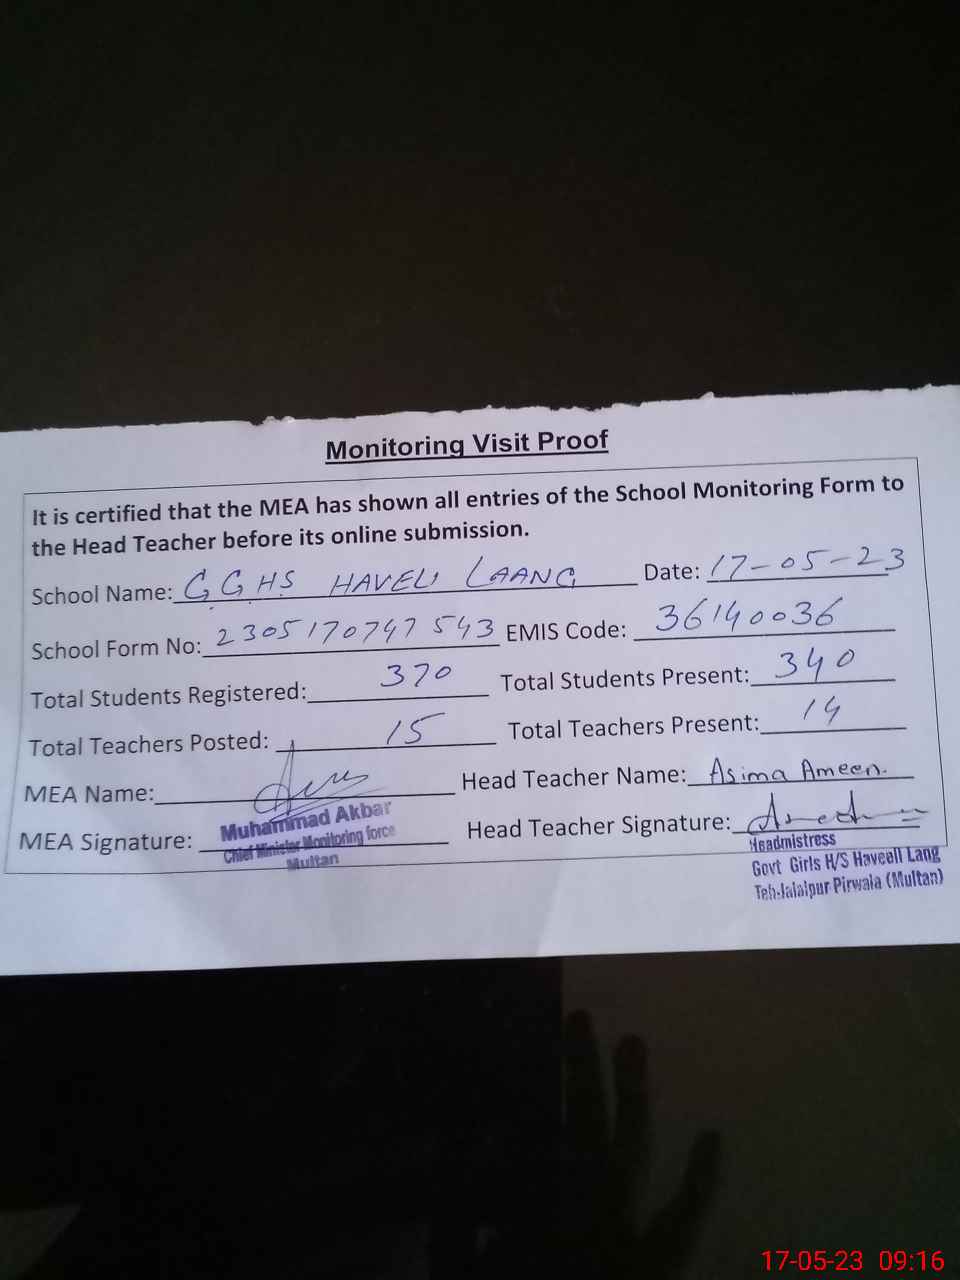 Monitoring Visit Proof
It is certified that the MEA has shown all entries of the School Monitoring Form to
the Head Teacher before its online submission.
School Name: GGHS HAVELI LAANG Date: 17-05-23
School Form No: 2305170747543 EMIS Code: 36140036
Total Students Registered: 370 Total Students Present: 340
Total Teachers Posted: 15 Total Teachers Present: 14
MEA Name: Head Teacher Name: Asima Ameen.
MEA Signature: Muhammad Akbar
Chief Minister Monitoring force
Multan
Head Teacher Signature:
Headmistress
Govt Girls H/S Haveell Lang
Teh-Jalalpur Pirwala (Multan)
17-05-23 09:16